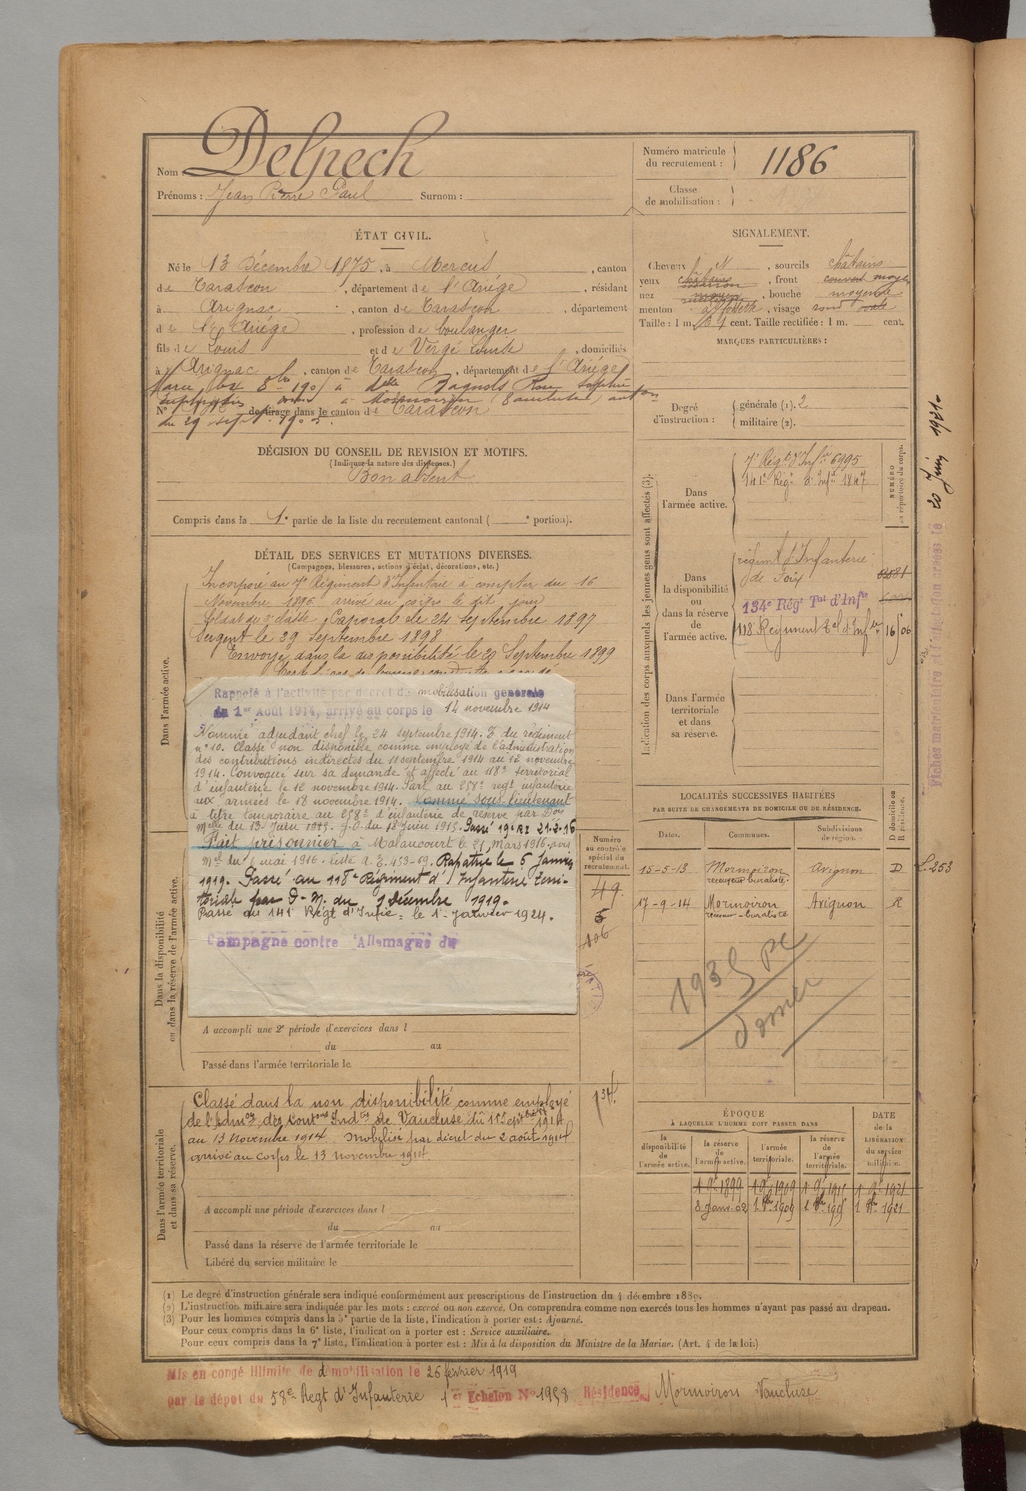 Nom Delpech
Prénoms : Jean Pierre Paul Surnom :
Numéro matricule du recrutement : 1186
Classe de mobilisation :
ÉTAT CIVIL.
Né le 13 Décembre 1875, à Mercus, canton
de Tarascon, département de l'Ariège, résidant
à Arignac, canton de Tarascon, département
de l'Ariège, profession de boulanger
fils de Louis et de Vergé Louise, domiciliés
à Arignac, canton de Tarascon, département de l'Ariège
à Delle Bagnols Rose
à Mormoiron (Vaucluse)
N° de tirage dans le canton de Tarascon
du 29 sept. 1905.
SIGNALEMENT.
Cheveux N, sourcils châtains
yeux châtains, front couvert moyen
nez moyen, bouche moyenne
menton à fossette, visage rond ovale
Taille : 1 m. cent. Taille rectifiée : 1 m. cent.
MARQUES PARTICULIÈRES :
Degré d'instruction : générale (1). 2
militaire (2).
DÉCISION DU CONSEIL DE REVISION ET MOTIFS.
(Indiquer la nature des dispenses.)
Bon absent
Compris dans la 1e partie de la liste du recrutement cantonal ( e portion).
DÉTAIL DES SERVICES ET MUTATIONS DIVERSES.
(Campagnes, blessures, actions d'éclat, décorations, etc.)
Dans l'armée active.
Incorporé au 7e Régiment d'Infanterie à compter du 16
Novembre 1896 arrivé au corps le dit jour
Soldat de 2e classe, Caporal le 24 septembre 1897
Sergent le 29 Septembre 1898
Envoyé dans la disponibilité le 20 Septembre 1899
Rappelé à l'activité par décret de mobilisation générale
du 1er Août 1914, arrivé au corps le 14 novembre 1914
Nommé adjudant chef le 24 septembre 1914. O. du régiment
n° 10. Classé non disponible comme employé de l'administration
des contributions indirectes du 11 septembre 1914 au 12 novembre
1914. Convoqué sur sa demande et affecté au 118e territorial
d'infanterie le 12 novembre 1914. Parti au 258e regt infanterie
aux armées le 18 novembre 1914. Nommé sous-lieutenant
à titre temporaire au 258e d'infanterie de réserve par Don
Mlle du 13 Juin 1915. J.O. du 18 Juin 1915. Passé 19e RI 21-2-16
Fait prisonnier à Malancourt le 21 Mars 1916. avis
Mel du 1 mai 1916. liste A.E. 453-69. Rapatrié le 5 Janvier
1919. Passé au 118e Régiment d'Infanterie Terri-
toriale par D. M. du 1 Décembre 1919.
Passé du 141e Régt d'Infie le 1er janvier 1924.
Campagne contre l'Allemagne du
Dans la disponibilité ou dans la réserve de l'armée active.
A accompli une 2e période d'exercices dans l
du au
Passé dans l'armée territoriale le
Numéro au contrôle spécial du recrutement.
49
5
106
134
Dans l'armée territoriale et dans sa réserve.
Classé dans la non disponibilité comme employé
de l'Admon des Contons Indtes de Vaucluse du 11 Septembre 1914
au 13 Novembre 1914. Mobilisé par décret du 2 août 1914
arrivé au corps le 13 novembre 1914
A accompli une période d'exercices dans l
du au
Passé dans la réserve de l'armée territoriale le
Libéré du service militaire le
Indication des corps auxquels les jeunes gens sont affectés (3).
NUMÉRO au répertoire du corps.
Dans l'armée active.
7e Régt d'Infie 6995
141e Régt d'Infie 1847
Dans la disponibilité ou dans la réserve de l'armée active.
régiment d'Infanterie
de Foix
134e Régt Tal d'Infie
118 Régiment Tal d'Infie 16/06
Dans l'armée territoriale et dans sa réserve.
LOCALITÉS SUCCESSIVES HABITÉES
PAR SUITE DE CHANGEMENTS DE DOMICILE OU DE RÉSIDENCE.
Dates. Communes. Subdivisions de région. D domicile ou R résidence.
15-5-13 Mormoiron Avignon D L-253
receveur buraliste
17-9-14 Mormoiron Avignon R
receveur-buraliste
ÉPOQUE
À LAQUELLE L'HOMME DOIT PASSER DANS
la disponibilité de l'armée active. la réserve de l'armée active. l'armée territoriale. la réserve de l'armée territoriale. DATE de la LIBÉRATION du service militaire.
(1) Le degré d'instruction générale sera indiqué conformément aux prescriptions de l'instruction du 4 décembre 1889.
(2) L'instruction militaire sera indiquée par les mots : exercé ou non exercé. On comprendra comme non exercés tous les hommes n'ayant pas passé au drapeau.
(3) Pour les hommes compris dans la 5e partie de la liste, l'indication à porter est : Ajourné.
Pour ceux compris dans la 6e liste, l'indication à porter est : Service auxiliaire.
Pour ceux compris dans la 7e liste, l'indication à porter est : Mis à la disposition du Ministre de la Marine. (Art. 4 de la loi.)
Mis en congé illimité de démobilisation le 26 février 1919
par le dépôt du 58e Regt d'Infanterie 1er Echelon No 1958 Résidence Mormoiron Vaucluse